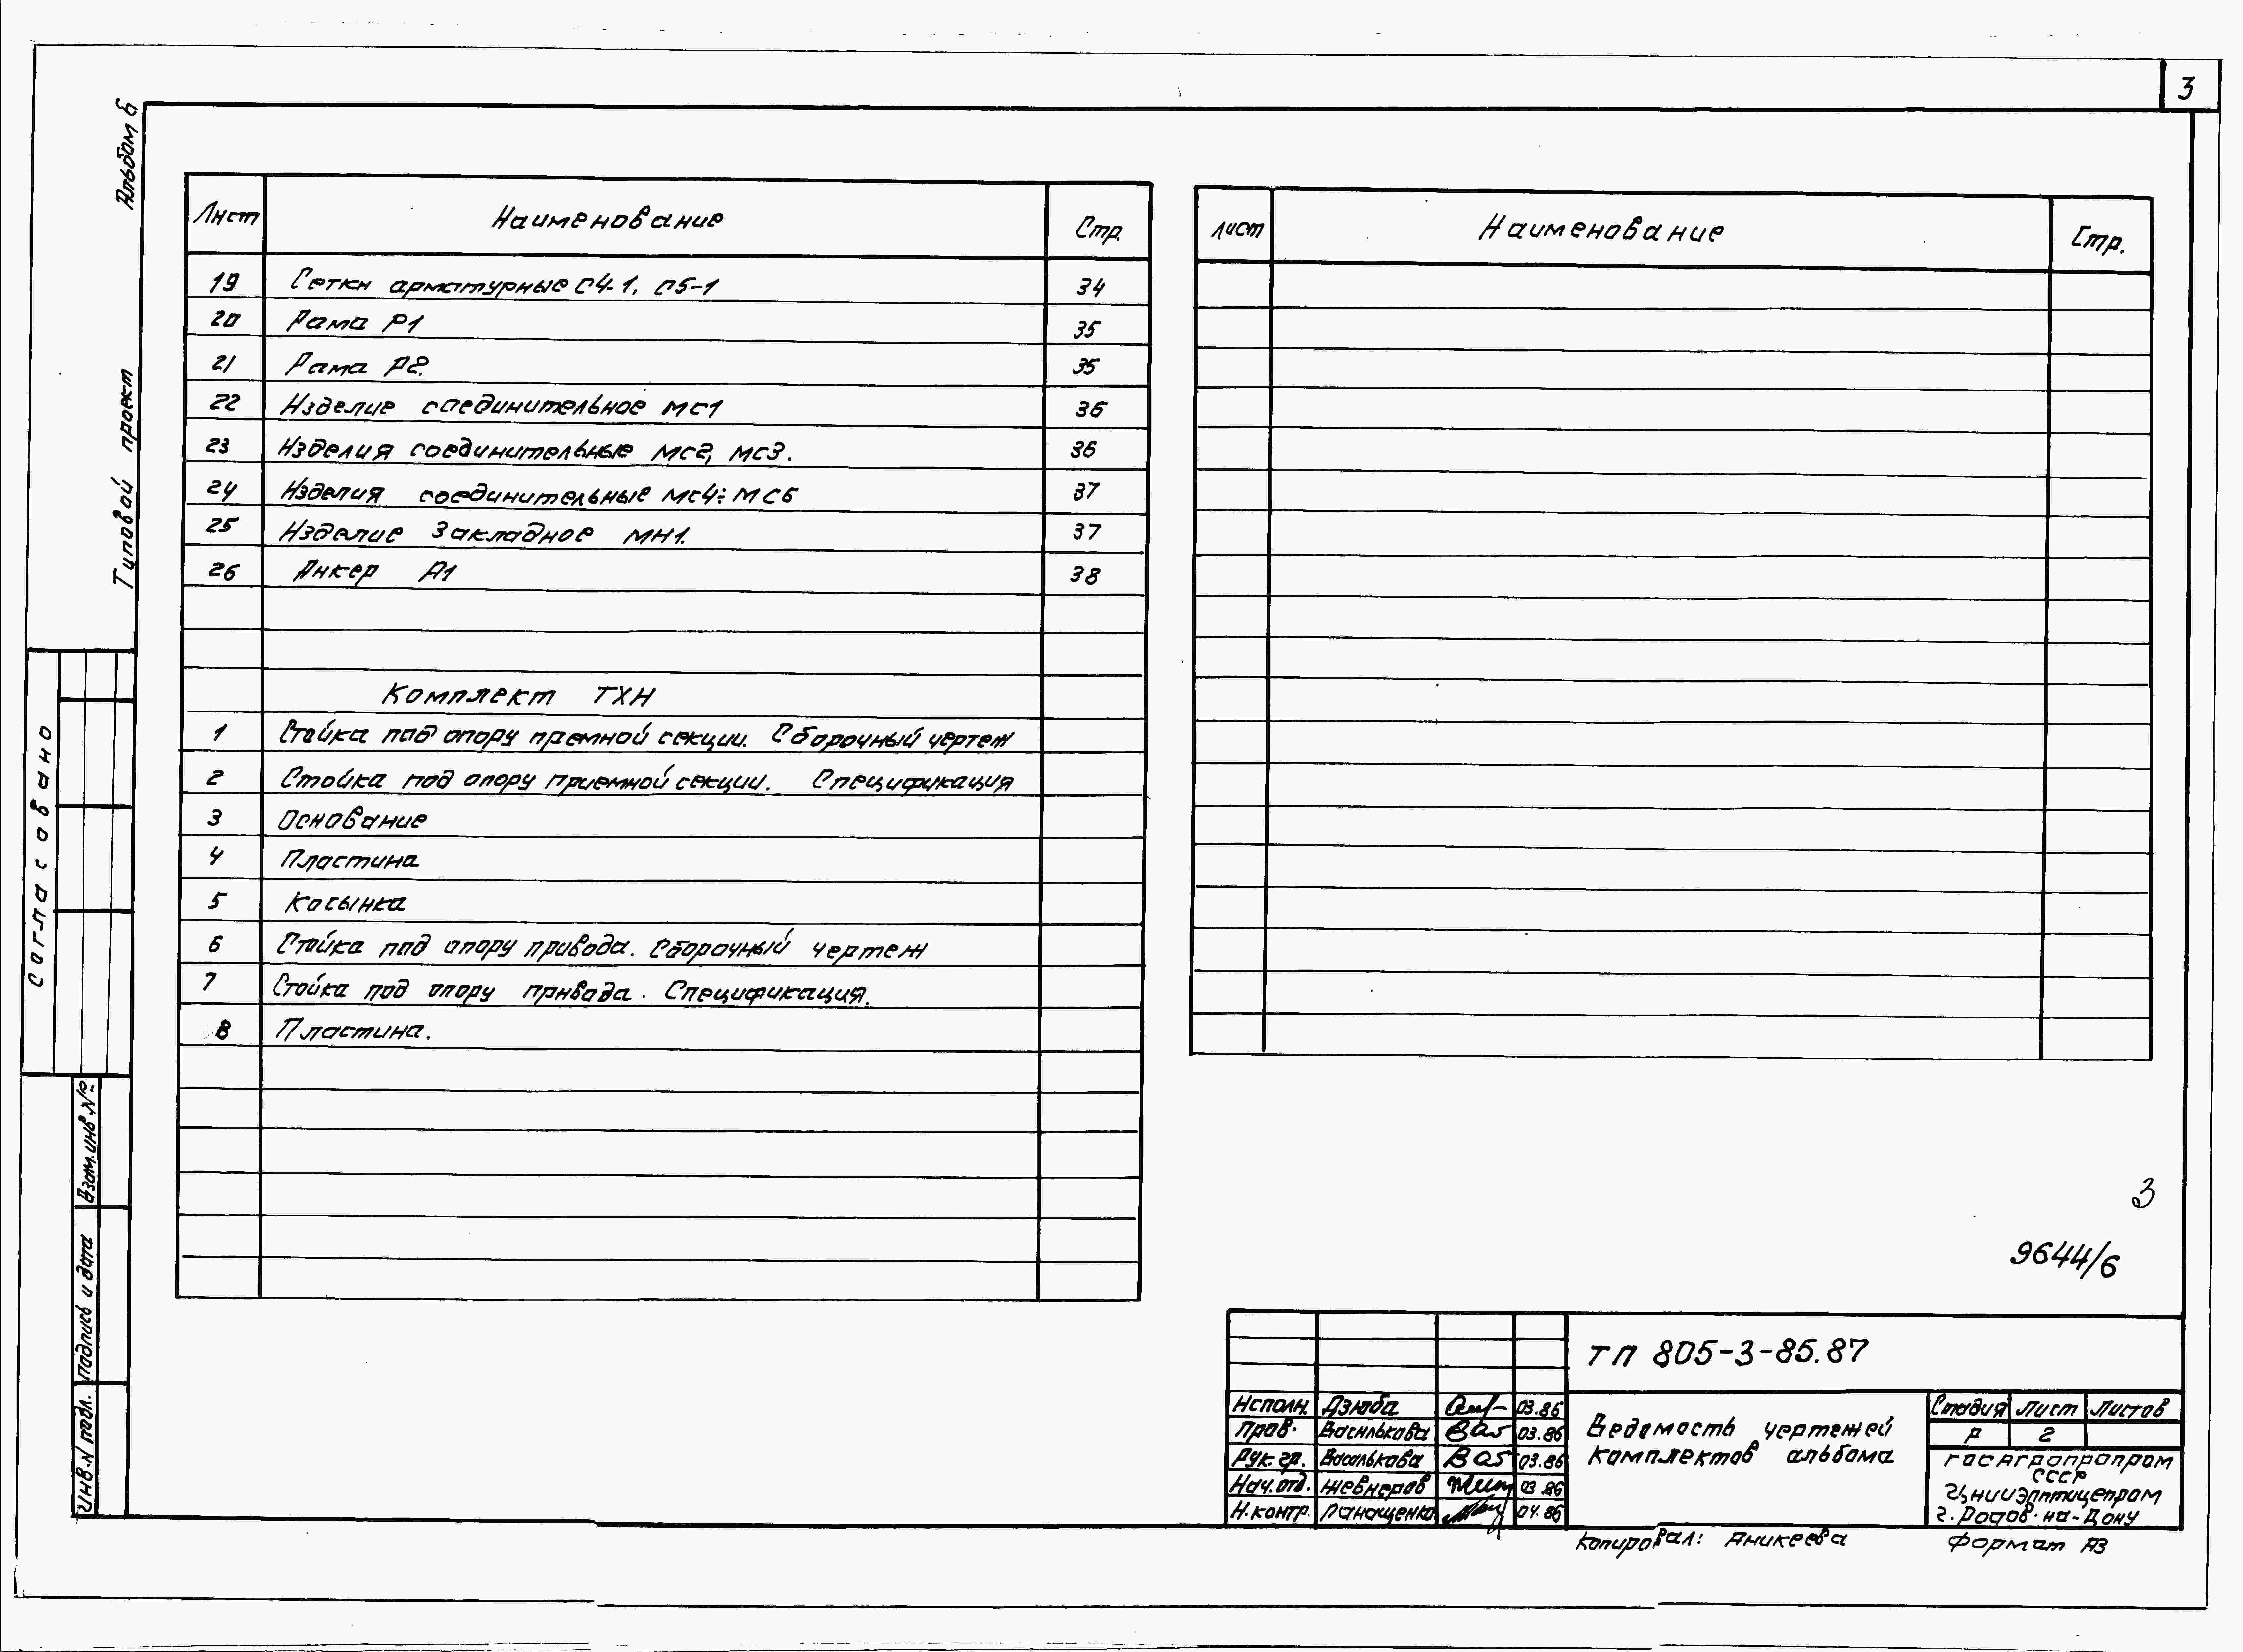 3
Альбом 6
Типовой проект
Лист Наименование Стр.
19 Сетки арматурные С4-1, С5-1 34
20 Рама Р1 35
21 Рама Р2. 35
22 Изделие соединительное МС1 36
23 Изделия соединительные МС2, МС3. 36
24 Изделия соединительные МС4÷МС6 37
25 Изделие Закладное МН1. 37
26 Анкер А1 38
Комплект ТХН
1 Стойка под опору премной секции. Сборочный чертеж
2 Стойка под опору приемной секции. Спецификация
3 Основание
4 Пластина
5 Косынка
6 Стойка под опору привода. Сборочный чертеж
7 Стойка под опору привода. Спецификация.
8 Пластина.
Лист Наименование Стр.
Согласовано
Взам.инв.№
Подпись и дата
Инв.№ подл.
3
9644/6
ТП 805-3-85.87
Исполн. Дзюба 03.86
Пров. Василькова 03.86
Рук.гр. Василькова 03.86
Нач.отд. Жевнеров 03.86
Н.контр. Панащенко 04.86
Ведомость чертежей
комплектов альбома
Стадия Лист Листов
Р 2
Госагропропром
СССР
ЦНИИЭПптицепром
г. Ростов-на-Дону
Копировал: Аникеева Формат А3